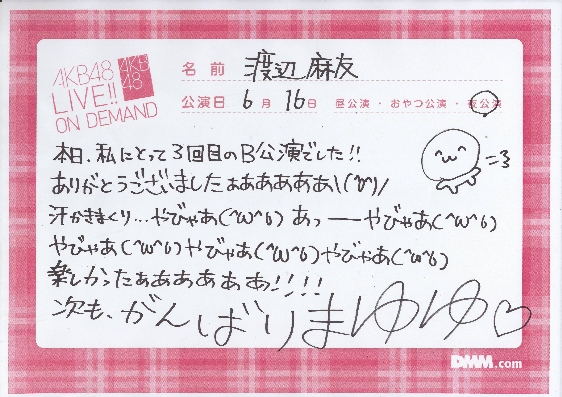 AKB48
LIVE!!
ON DEMAND
AKB
48
名前 渡辺麻友
公演日 6月16日 昼公演・おやつ公演・夜公演
本日、私にとって3回目のB公演でした!!
ありがとうございましたぁぁあああああ\(^∀^)/
汗かきまくり…やびゃあ(^ω^;) あっ——やびゃあ(^ω^;)
やびゃあ(^ω^;)やびゃあ(^ω^;)やびゃあ(^ω^;)
楽しかったぁぁああああ!!!!
次も、がんばりまゆゆ♡
DMM.com